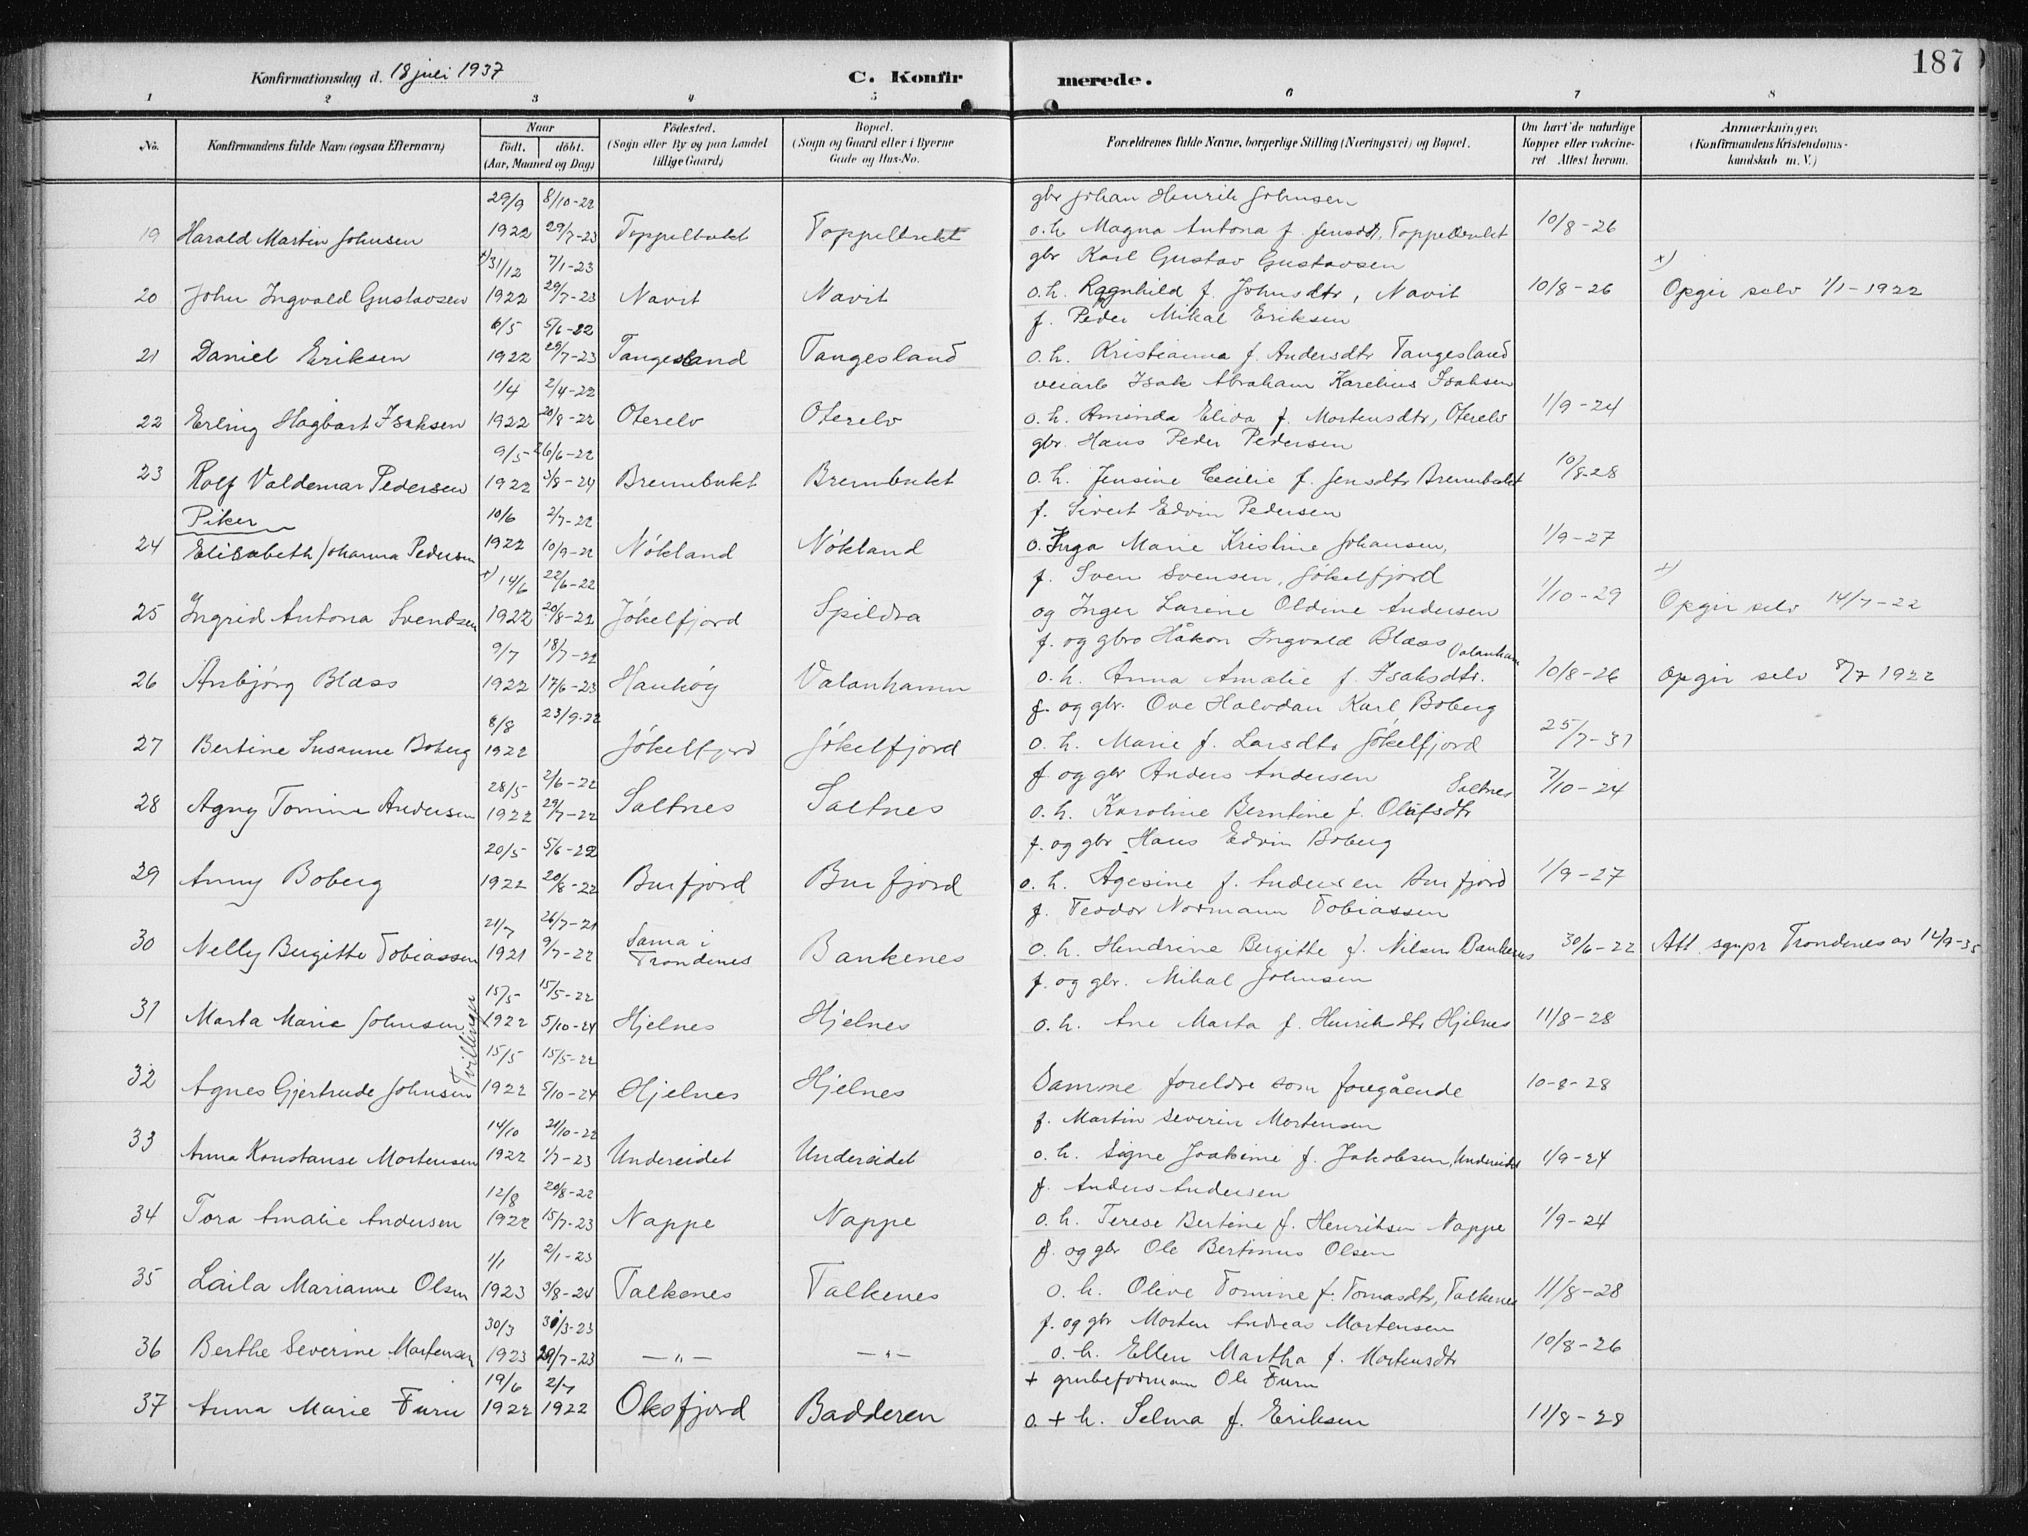 187
Konfirmationsdag d. 18 juli 1937 C. Konfirmerede.
1 2 3 4 5 6 7 8
No. Konfirmandens fulde Navn (ogsaa Efternavn) Naar födt. döbt. (Aar, Maaned og Dag) Födested. (Sogn eller By og paa Landet tillige Gaard) Bopæl. (Sogn og Gaard eller i Byerne Gade og Hus-No. Forældrenes fulde Navne, borgerlige Stilling (Næringsvei) og Bopæl. Om havt de naturlige Kopper eller vakcineret Attest herom. Anmærkninger. (Konfirmandens Kristendomskundskab m. V.)
29/9 8/10-22 gbr Johan Henrik Johnsen
19 Harald Martin Johnsen 1922 29/7-23 Toppelbukt Toppelbukt o.h. Magna Antona f. Jensdtr. Toppelbukt 10/8-26
x) 31/12 7/1-23 gbr Karl Gustav Gustavsen x)
20 John Ingvald Gustavsen 1922 29/7-23 Navit Navit o.h. Ragnhild f. Johnsdtr, Navit 10/8-26 Opgir selv 1/1-1922
6/5 5/6-22 f. Peder Mikal Eriksen
21 Daniel Eriksen 1922 29/7-23 Tangesland Tangesland o.h. Kristianna f. Andersdtr Tangesland
1/4 2/4-22 veiarb Isak Abraham Karelius Isaksen
22 Erling Hagbart Isaksen 1922 20/8-22 Oterelv Oterelv o.h. Aminda Elida f. Mortensdtr, Oterelv 1/9-24
9/5 26/6-22 gbr. Hans Peder Pedersen
23 Rolf Valdemar Pedersen 1922 3/8-24 Brembukt Brembukt o.h. Jensine Cecilie f. Jensdtr Brembukt 10/8-28
Piker 10/6 2/7-22 f. Sivert Edvin Pedersen
24 Elisabeth Johanna Pedersen 1922 10/9-22 Nökland Nökland o. Inga Marie Kristine Johansen, 1/9-27
x) 14/6 22/6-22 f. Sven Svensen, Jökelfjord x)
25 Ingrid Antona Svendsen 1922 20/8-22 Jökelfjord Spildra og Inger Larine Oldine Andersen 1/10-29 Opgir selv 14/7-22
9/7 18/7-22 f. og gbr Håkon Ingvald Blæss Valanhamn
26 Anbjörg Blæss 1922 17/6-23 Haukøy Valanhamn o.h. Anna Amalie f. Isaksdtr. 10/8-26 Opgir selv 8/7 1922
8/8 23/9-22 f. og gbr. Ove Halvdan Karl Boberg
27 Bertine Susanne Boberg 1922 Jökelfjord Jökelfjord o.h. Marie f. Larsdtr Jökelfjord 25/7-31
28/5 2/6-22 f. og gbr Anders Andersen Saltnes
28 Agny Tomine Andersen 1922 29/7-22 Saltnes Saltnes o.h. Karoline Berntine f. Olufsdtr 7/10-24
20/5 5/6-22 f. og gbr Hans Edvin Boberg
29 Anny Boberg 1922 20/8-22 Burfjord Burfjord o.h. Agesine f. Andersen Burfjord 1/9-27
21/7 26/7-21 f. Teodor Normann Tobiassen
30 Nelly Birgitte Tobiassen 1921 9/7-22 Sama i Trondenes Bankenes o.h. Hendrine Birgitte f. Nilsen Bankenes 30/6-22 Att. sgnpr Trondenes av 14/9-35
15/5 15/5-22 f. og gbr. Mikal Johnsen
31 Marta Marie Johnsen 1922 5/10-24 Hjelnes Hjelnes o.h. Ane Marta f. Henriksdtr Hjelnes 11/8-28
Tvillinger
15/5 15/5-22
32 Agnes Gjertrude Johnsen 1922 5/10-24 Hjelnes Hjelnes Samme foreldre som foregående 10-8-28
14/10 21/10-22 f. Martin Severin Mortensen
33 Anna Konstanse Mortensen 1922 1/7-23 Undereidet Undereidet o.h. Signe Joakime f. Jakobsen, Undereidet 1/9-24
12/8 20/8-22 f. Anders Andersen
34 Tora Amalie Andersen 1922 15/7-23 Nappe Nappe o.h. Terese Bertine f. Henriksen Nappe 1/9-24
1/1 2/1-23 f. og gbr Ole Bertinus Olsen
35 Laila Marianne Olsen 1923 3/8-24 Talkenes Talkenes o.h. Olive Tomine f. Tomasdtr, Talkenes 11/8-28
30/3 31/3-23 f. og gbr Morten Andreas Mortensen
36 Berthe Severine Mortensen 1923 29/7-23 —"— —"— o.h. Ellen Martha f. Mortensdtr 10/8-26
19/6 2/7 + grubeformann Ole Furu
37 Anna Marie Furu 1922 1922 Oksfjord Badderen o. + h. Selma f. Eriksen 11/8-28